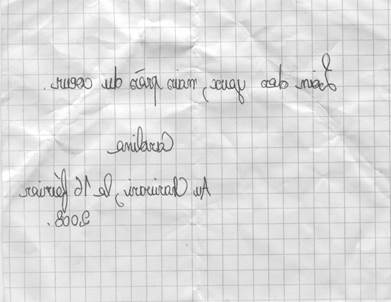 Loin des yeux, mais près du coeur.
Caroline
Au le 16 février
2008.